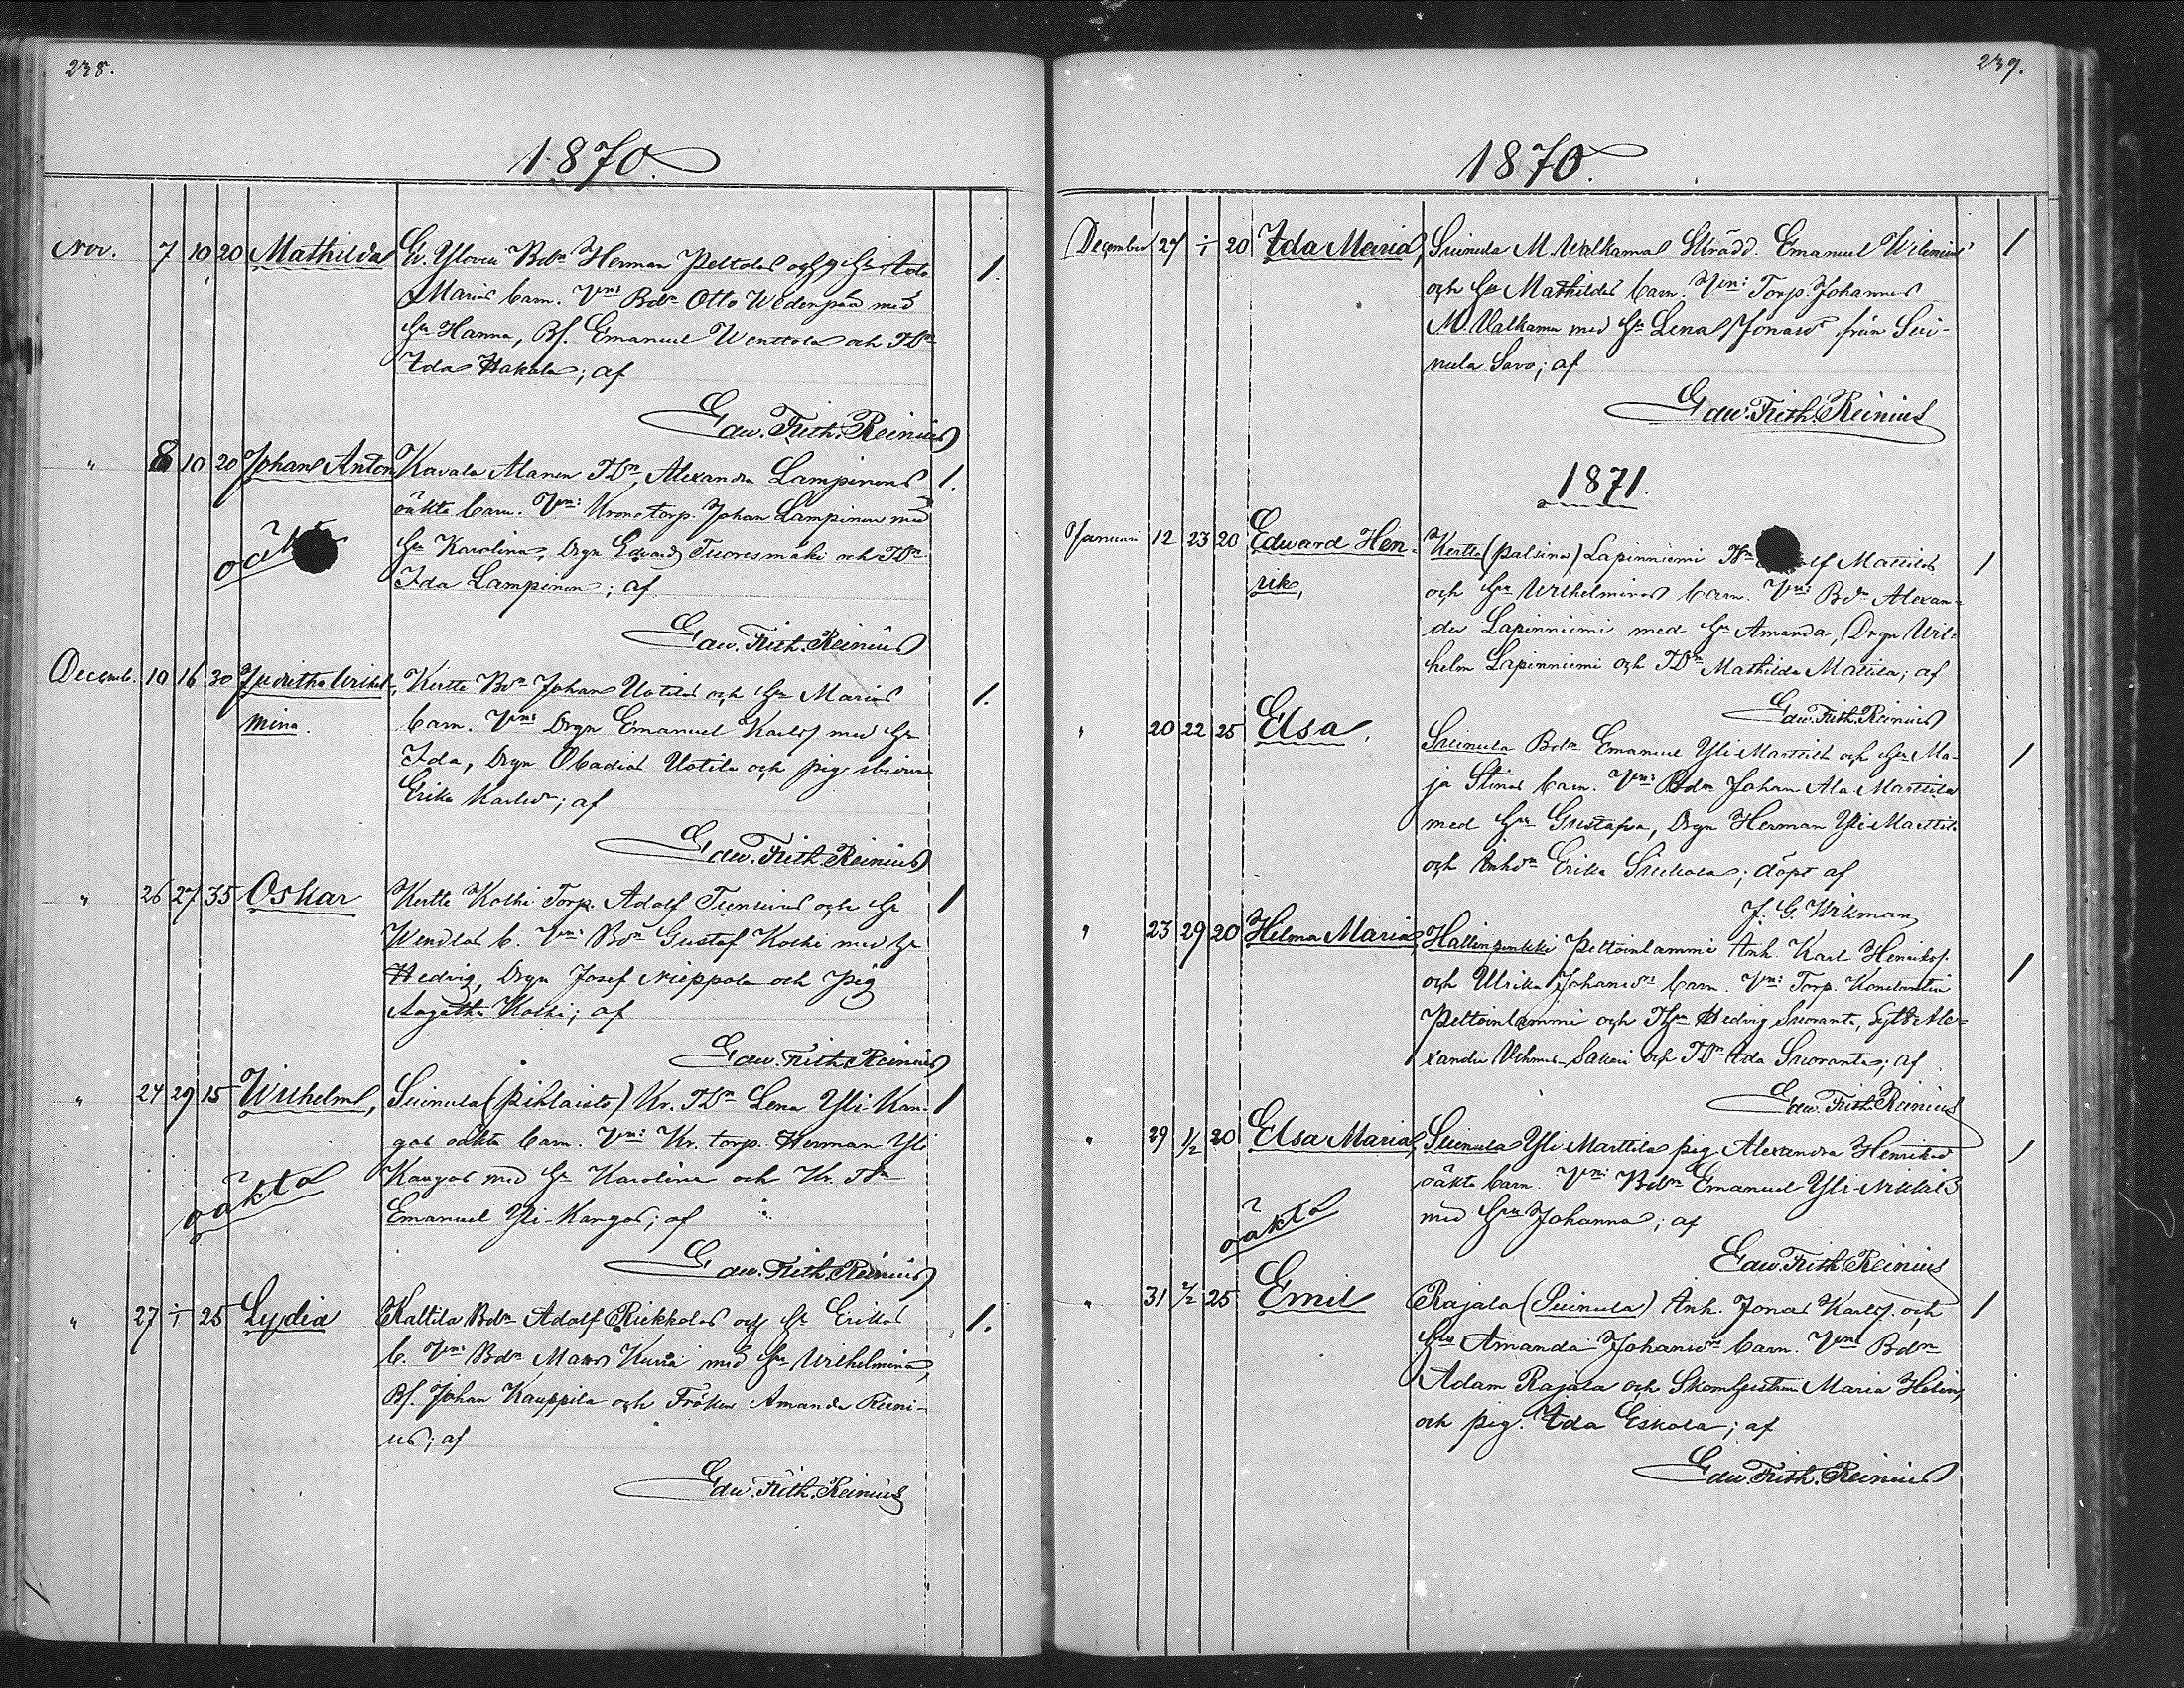 238.
1870.
Nov. 7 10 20 Mathilda Bdn Herman Peltola och h. Hu Ida
Maria barn. Vn: Bdn Otto Wedenpää med
Hu Hanna, Bf. Emanuel Wenttola och TDn
Ida Hakala; af
Edw. Frith. Reinius
" 8 10 20 Johan Anton Kavala Manen TDn Alexandra Lampinens
oäkta barn. Vn: Kronotorp. Johan Lampinen med
oäkta
Hu Karolina, Drgn Edvard Tuoresmäki och TDn
Ida Lampinen; af
Edw. Frith. Reinius
Decemb. 10 16 30 Juditha Wilhel-, Kertte Bdn Johan Uotilas och Hu Marias
mina. barn. Vn: Drgn Emanuel Karlsf med Hu
Ida, Drgn Obadias Uotila och pig.
Erika Karlsdr; af
Edw. Frith. Reinius
" 26 27 35 Oskar Kertte Koski Torp. Adolf och Hu
Wendlas b. Vn: Bdn Gustaf Koski med Hu
Hedvig, Drgn Josef Nieppola och Pig
Agatha Koski; af
Edw. Frith. Reinius
" 24 29 15 Wilhelm, Suinula (Pihlaisto) Kr. TDn Lena Yli-Kan-
gas oäkta barn. Vn: Kr. torp. Herman Yli
oäkta
Kangas med Hu Karolina och Kr. TSn
Emanuel Yli-Kangas; af
Edw. Frith. Reinius
" 27 ÷ 25 Lydia Kaltila Bdn Adolf Riekkolas och Hu Erikas
b. Vn: Bdn Matts Kurra med Hu Wilhelmina,
Bf. Johan Kauppila och Fröken Amanda Reini-
us; af
Edw. Frith. Reinius
239.
1870.
December 27 ÷ 20 Ida Maria, Suinula M. Walkama Skrädd. Emanuel Wilenius'
och Hu Mathildas barn. Vn: Torp. Johannes
M. Walkama med Hu Lena Jonasdr från Sui-
nula Savo; af
Edw. Frith. Reinius
1871.
Januari 12 23 20 Edward Hen- Kertte (Palsina) Lapinniemi Mattilas
rik, och Hu Wilhelminas barn. Vn: Bdn Alexan-
der Lapinniemi med Hu Amanda, Drgn Wil-
helm Lapinniemi och TDn Mathilda Mattila; af
Edw. Frith. Reinius
" 20 22 25 Elsa, Suinula Bdn Emanuel Yli-Marttila och Hu Ma-
ja Stinas barn. Vn: Bdn Johan Ala-Marttila
med Hu Gustafva, Drgn Herman Yli-Marttila
och Inhdn Erika; döpt af
J. G. Wikman
" 23 29 20 Hilma Maria, Hallinpenkki Peltoinlammi Inh. Karl Henriksf.
och Ulrika Johansdrs barn. Vn: Torp. Konstantin
Peltoinlammi och THu Hedvig Suoranta, Sytl. Ale-
xander Sakari och TDn Ida Suoranta; af
Edw. Frith. Reinius
" 29 1/2 20 Elsa Maria, Suinula Yli Marttila pig. Alexandra Henriksd
oäkta barn. Vn: Bdn Emanuel Yli-Nikkilä
oäkta
med Hu Johanna; af
Edw. Frith. Reinius
" 31 7/2 25 Emil Rajala (Suinula) Inh. Jonas Karlsf. och
Hu Amanda Johansdrs barn. Vn: Bdn
Adam Rajala och Maria Helin,
och pig. Ida Eskola; af
Edw. Frith. Reinius